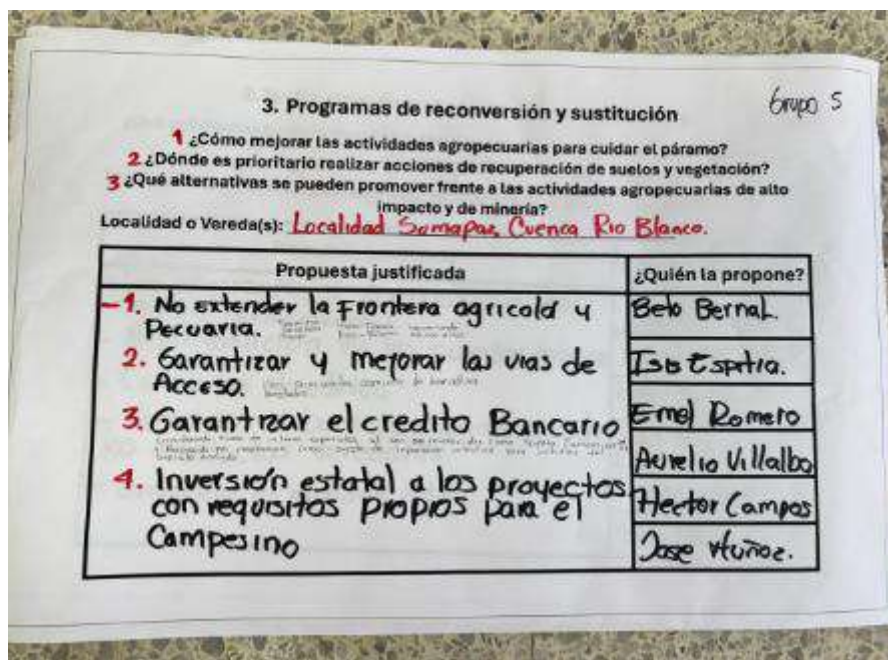 Grupo 5
3. Programas de reconversión y sustitución
1 ¿Cómo mejorar las actividades agropecuarias para cuidar el páramo?
2 ¿Dónde es prioritario realizar acciones de recuperación de suelos y vegetación?
3 ¿Qué alternativas se pueden promover frente a las actividades agropecuarias de alto
impacto y de minería?
Localidad o Vereda(s): Localidad Sumapaz, Cuenca Rio Blanco.
Propuesta justificada
¿Quién la propone?
-1. No extender la Frontera agricola y
Pecuaria.
2. Garantizar y mejorar las vias de
Acceso.
3. Garantizar el credito Bancario
4. Inversión estatal a los proyectos
con requisitos propios para el
Campesino
Beto Bernal.
Isis Espitia.
Emel Romero
Aurelio Villalba
Hector Campos
Jose Muñoz.